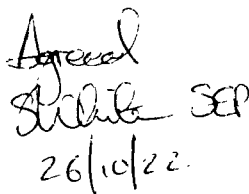 Agreed
SEP
26/10/22